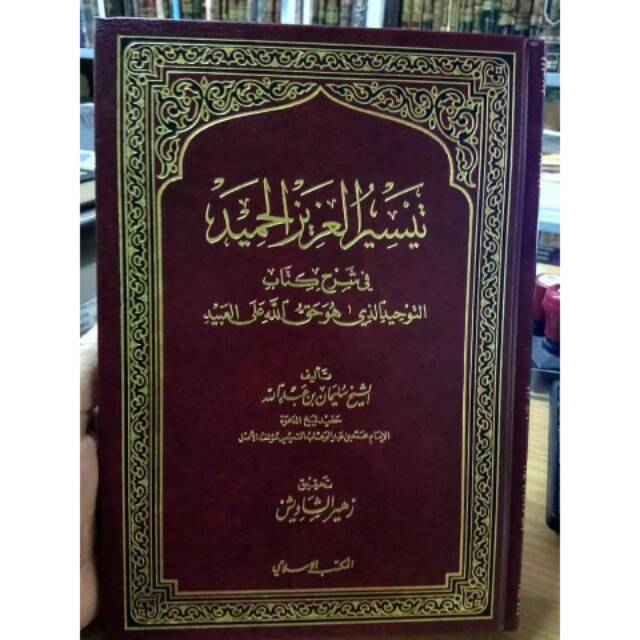 تيسير العزيز الحميد
في شرح كتاب
التوحيد الذي هو حق الله على العبيد
تأليف
الشيخ سليمان بن عبد الله
حفيد شيخ الدعوة
الإمام محمد بن عبد الوهاب التميمي مؤلف الأصل
تحقيق
زهير الشاويش
المكتب الإسلامي